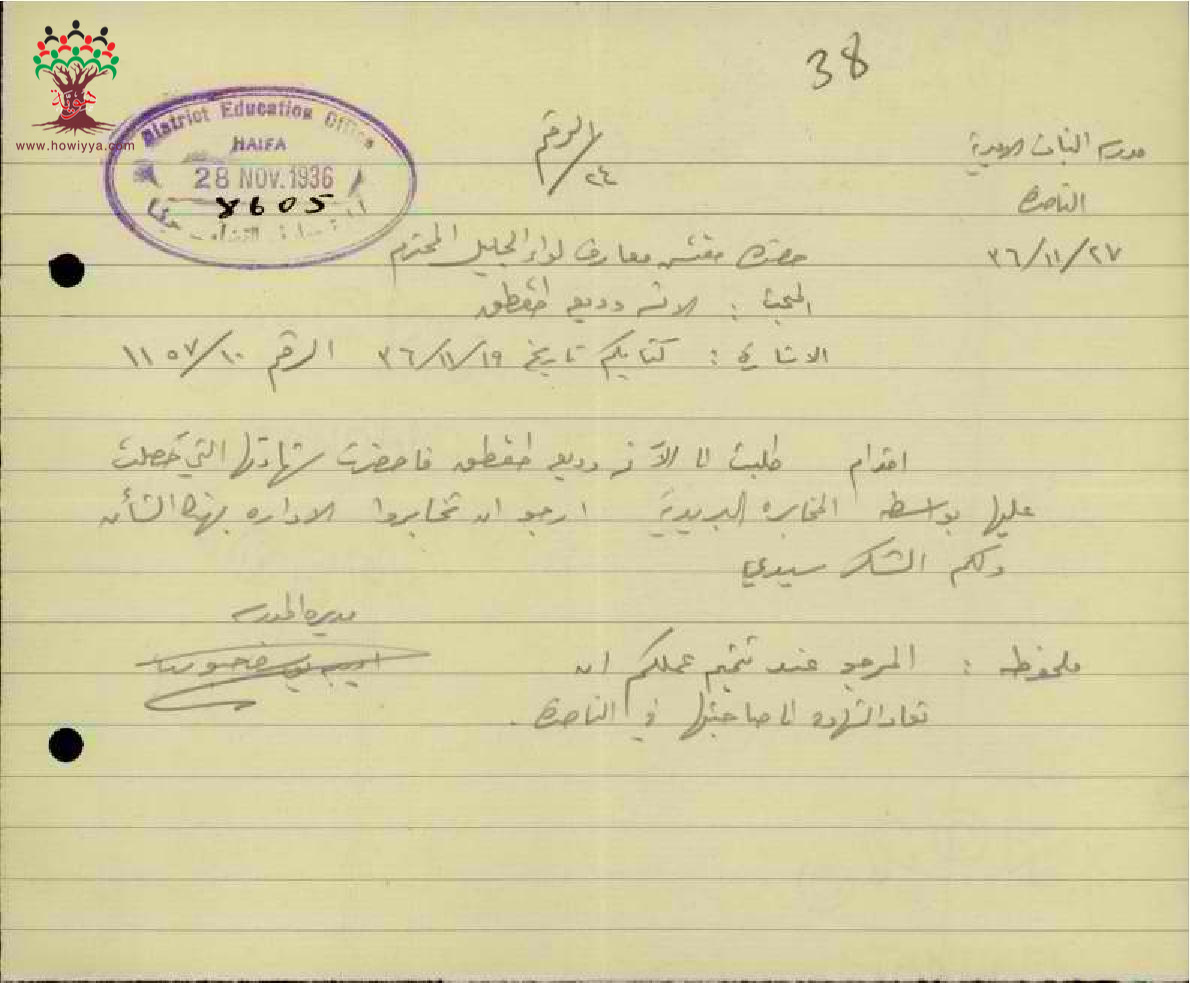 38
هوية
www.howiyya.com
District Education Office
HAIFA
28 NOV. 1936
8605
مدرسة البنات الاميرية
الرقم
٢٤/
الناصرة
٣٦/١١/٢٧
حضرة مفتش معارف لواء الجليل المحترم
المبحث : الانسة وديعه قطقط
الاشارة : كتابكم تاريخ ٣٦/١١/١٩ الرقم ١١٥٧/١٠
طلبت الى الآنسة وديعه فاحضرت شهادتها التي حصلت
عليها بواسطة المخابره البريدية ارجو ان تخابروا الاداره بهذا الشأن
ولكم الشكر سيدي
مديرة المدرسه
ملحوظه : المرجو عند تتميم عملكم ان
تعاد الشهاده الى صاحبتها في الناصرة.